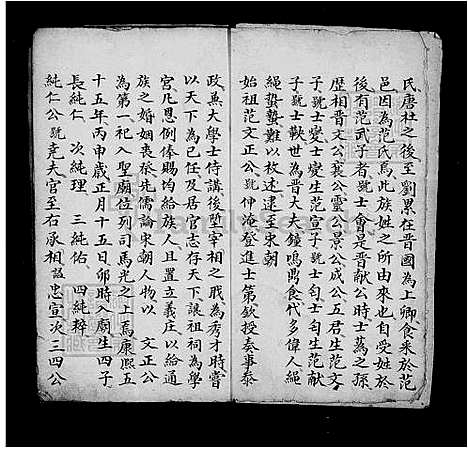 氏唐杜之後至劉累在晋國為上卿食釆於范
邑因為范氏焉此族姓之所由來也自受姓於
後有范武子者號士會是晋献公時士蒍之孫
歷相晋文公襄公靈公景公成公五君生范文
子號士燮士燮生范宣子號士匄士匄生范献
子號士鞅世為晋大夫鐘鳴鼎食代多偉人繩
繩蟄蟄難以枚述逮至宋朝
始祖范文正公號仲淹登進士第欽授奏事
政無大學士侍講後堕宰相之戝為秀才時嘗
以天下為已任及居官志存天下讓祖祠為學
宮凡恩例俸賜均給族人且置立義庄以給通
族之婚姻喪𦵏先儒論宋朝人物以 文正公
為第一祀入聖廟位列司馬光之上焉康熙五
十五年丙申歳正月十五日卯時入廟生四子
長純仁 次純理 三純佑 四純粹
純仁公號堯夫官至右承相諡忠宣次三四公